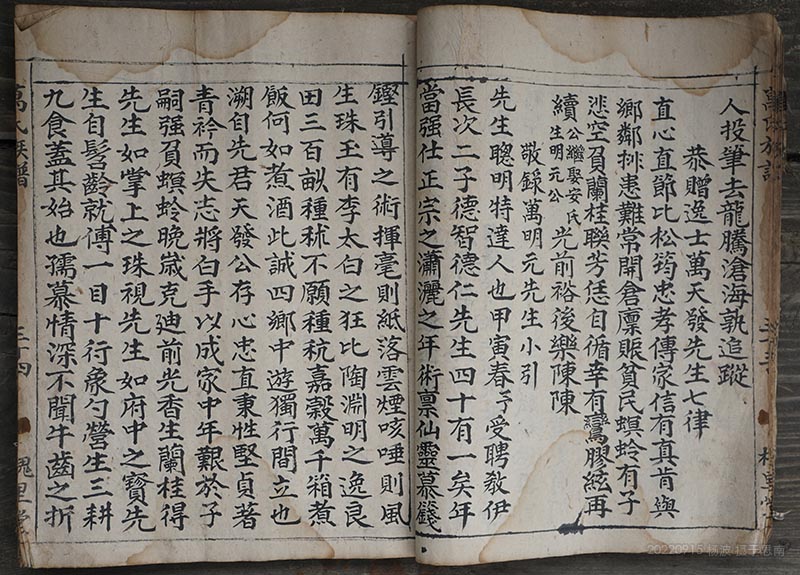 人投筆去龍騰滄海孰追蹤
恭贈逸士萬天發先生七律
直心直節比松筠忠孝傳家信有真肯與
鄉鄰排患難常開倉廪賑貧民螟蛉有子
悲空負蘭桂聯芳恁自循幸有鸞膠絃再
續公繼娶安氏生明元公光前裕後樂陳陳
敬錄萬明元先生小引
先生聰明特達人也甲寅春予受聘教伊
長次二子德智德仁先生四十有一矣年
當强仕正宗之瀟灑之年術禀仙靈慕籛
鏗引導之術揮毫則紙落雲煙咳唾則風
生珠玉有李太白之狂比陶淵明之逸良
田三百畝種秫不願種秔嘉穀萬千箱煮
飯何如煮酒此誠四鄉中遊獨行間立也
溯自先君天發公存心忠直秉性堅貞著
青衿而失志將白手以成家中年艱於子
嗣强負螟蛉晚歲克廸前光香生蘭桂得
先生如掌上之珠視先生如府中之寳先
生自髫齡就傅一目十行象勺黌生三耕
九食蓋其始也孺慕情深不聞牛齒之折
萬氏族譜
三十四
20220915 杨波 摄于思南